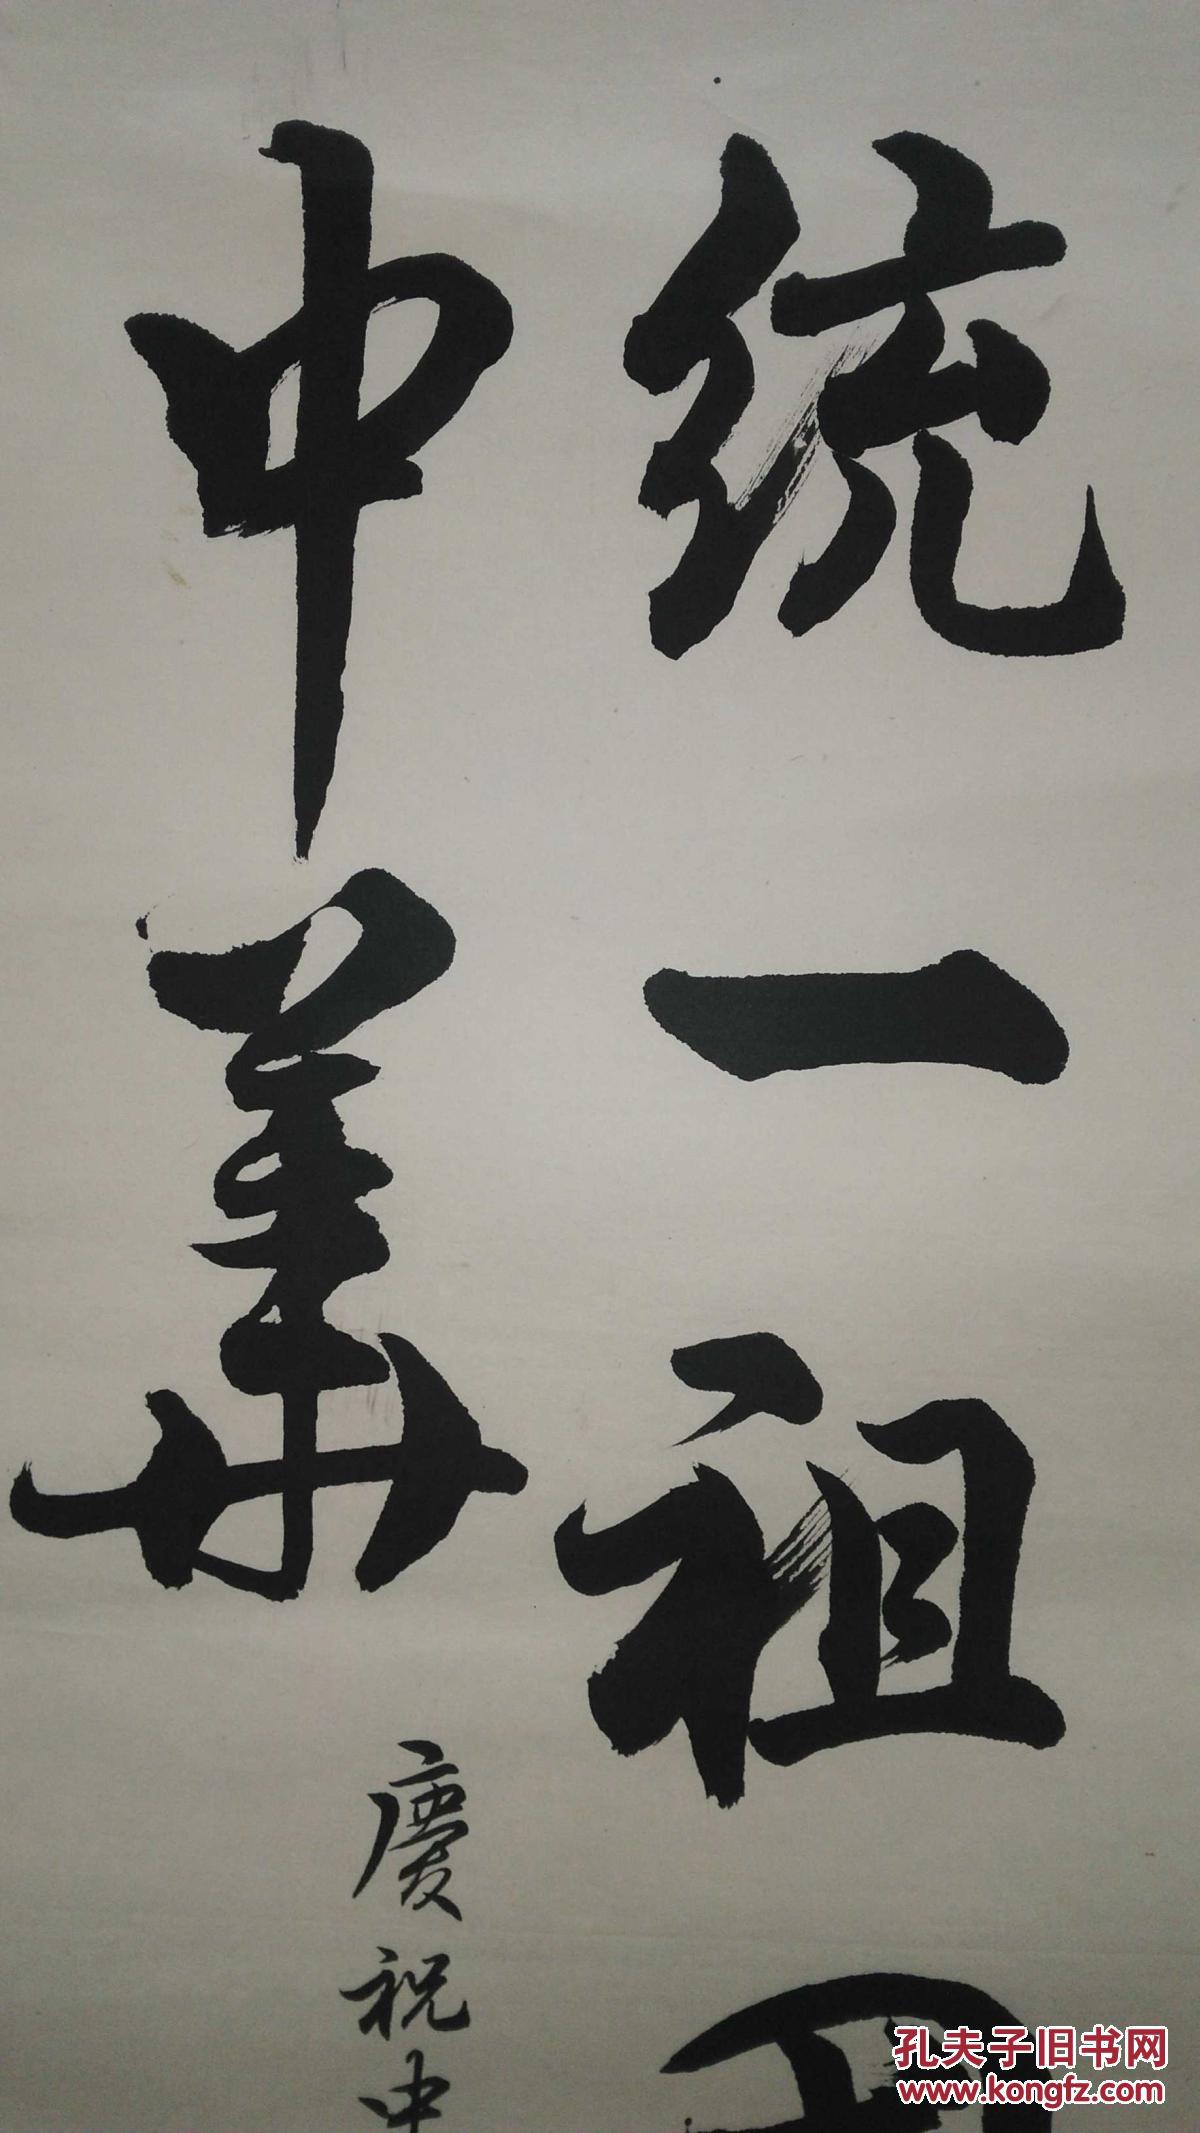 統一祖
中華
慶祝中
孔夫子旧书网
www.kongfz.com